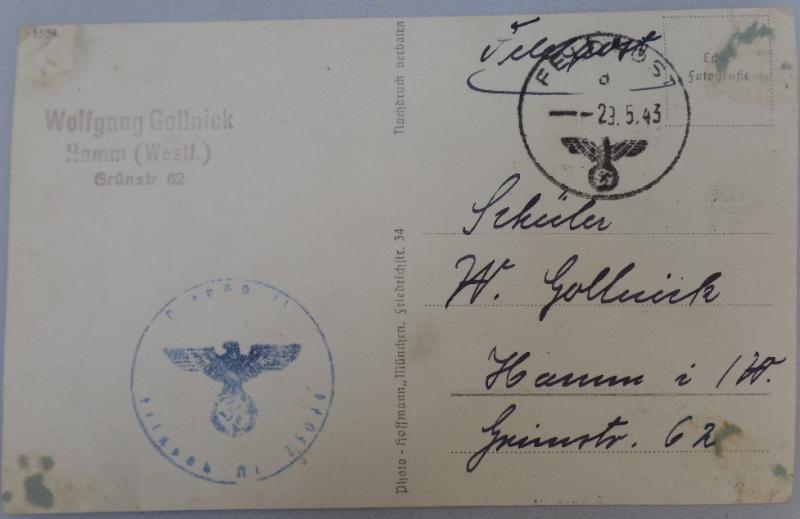 Wolfgang Gollnick
Hamm (Westf.)
Grünstr. 62
Nachdruck verboten
Photo-Hoffmann, München, Friedrichstr. 34
Feldpost
FELDPOST
d
-- 29.5.43
Echte
Fotografie
Schüler
W. Gollnick
Hamm i/W.
Grünstr. 62